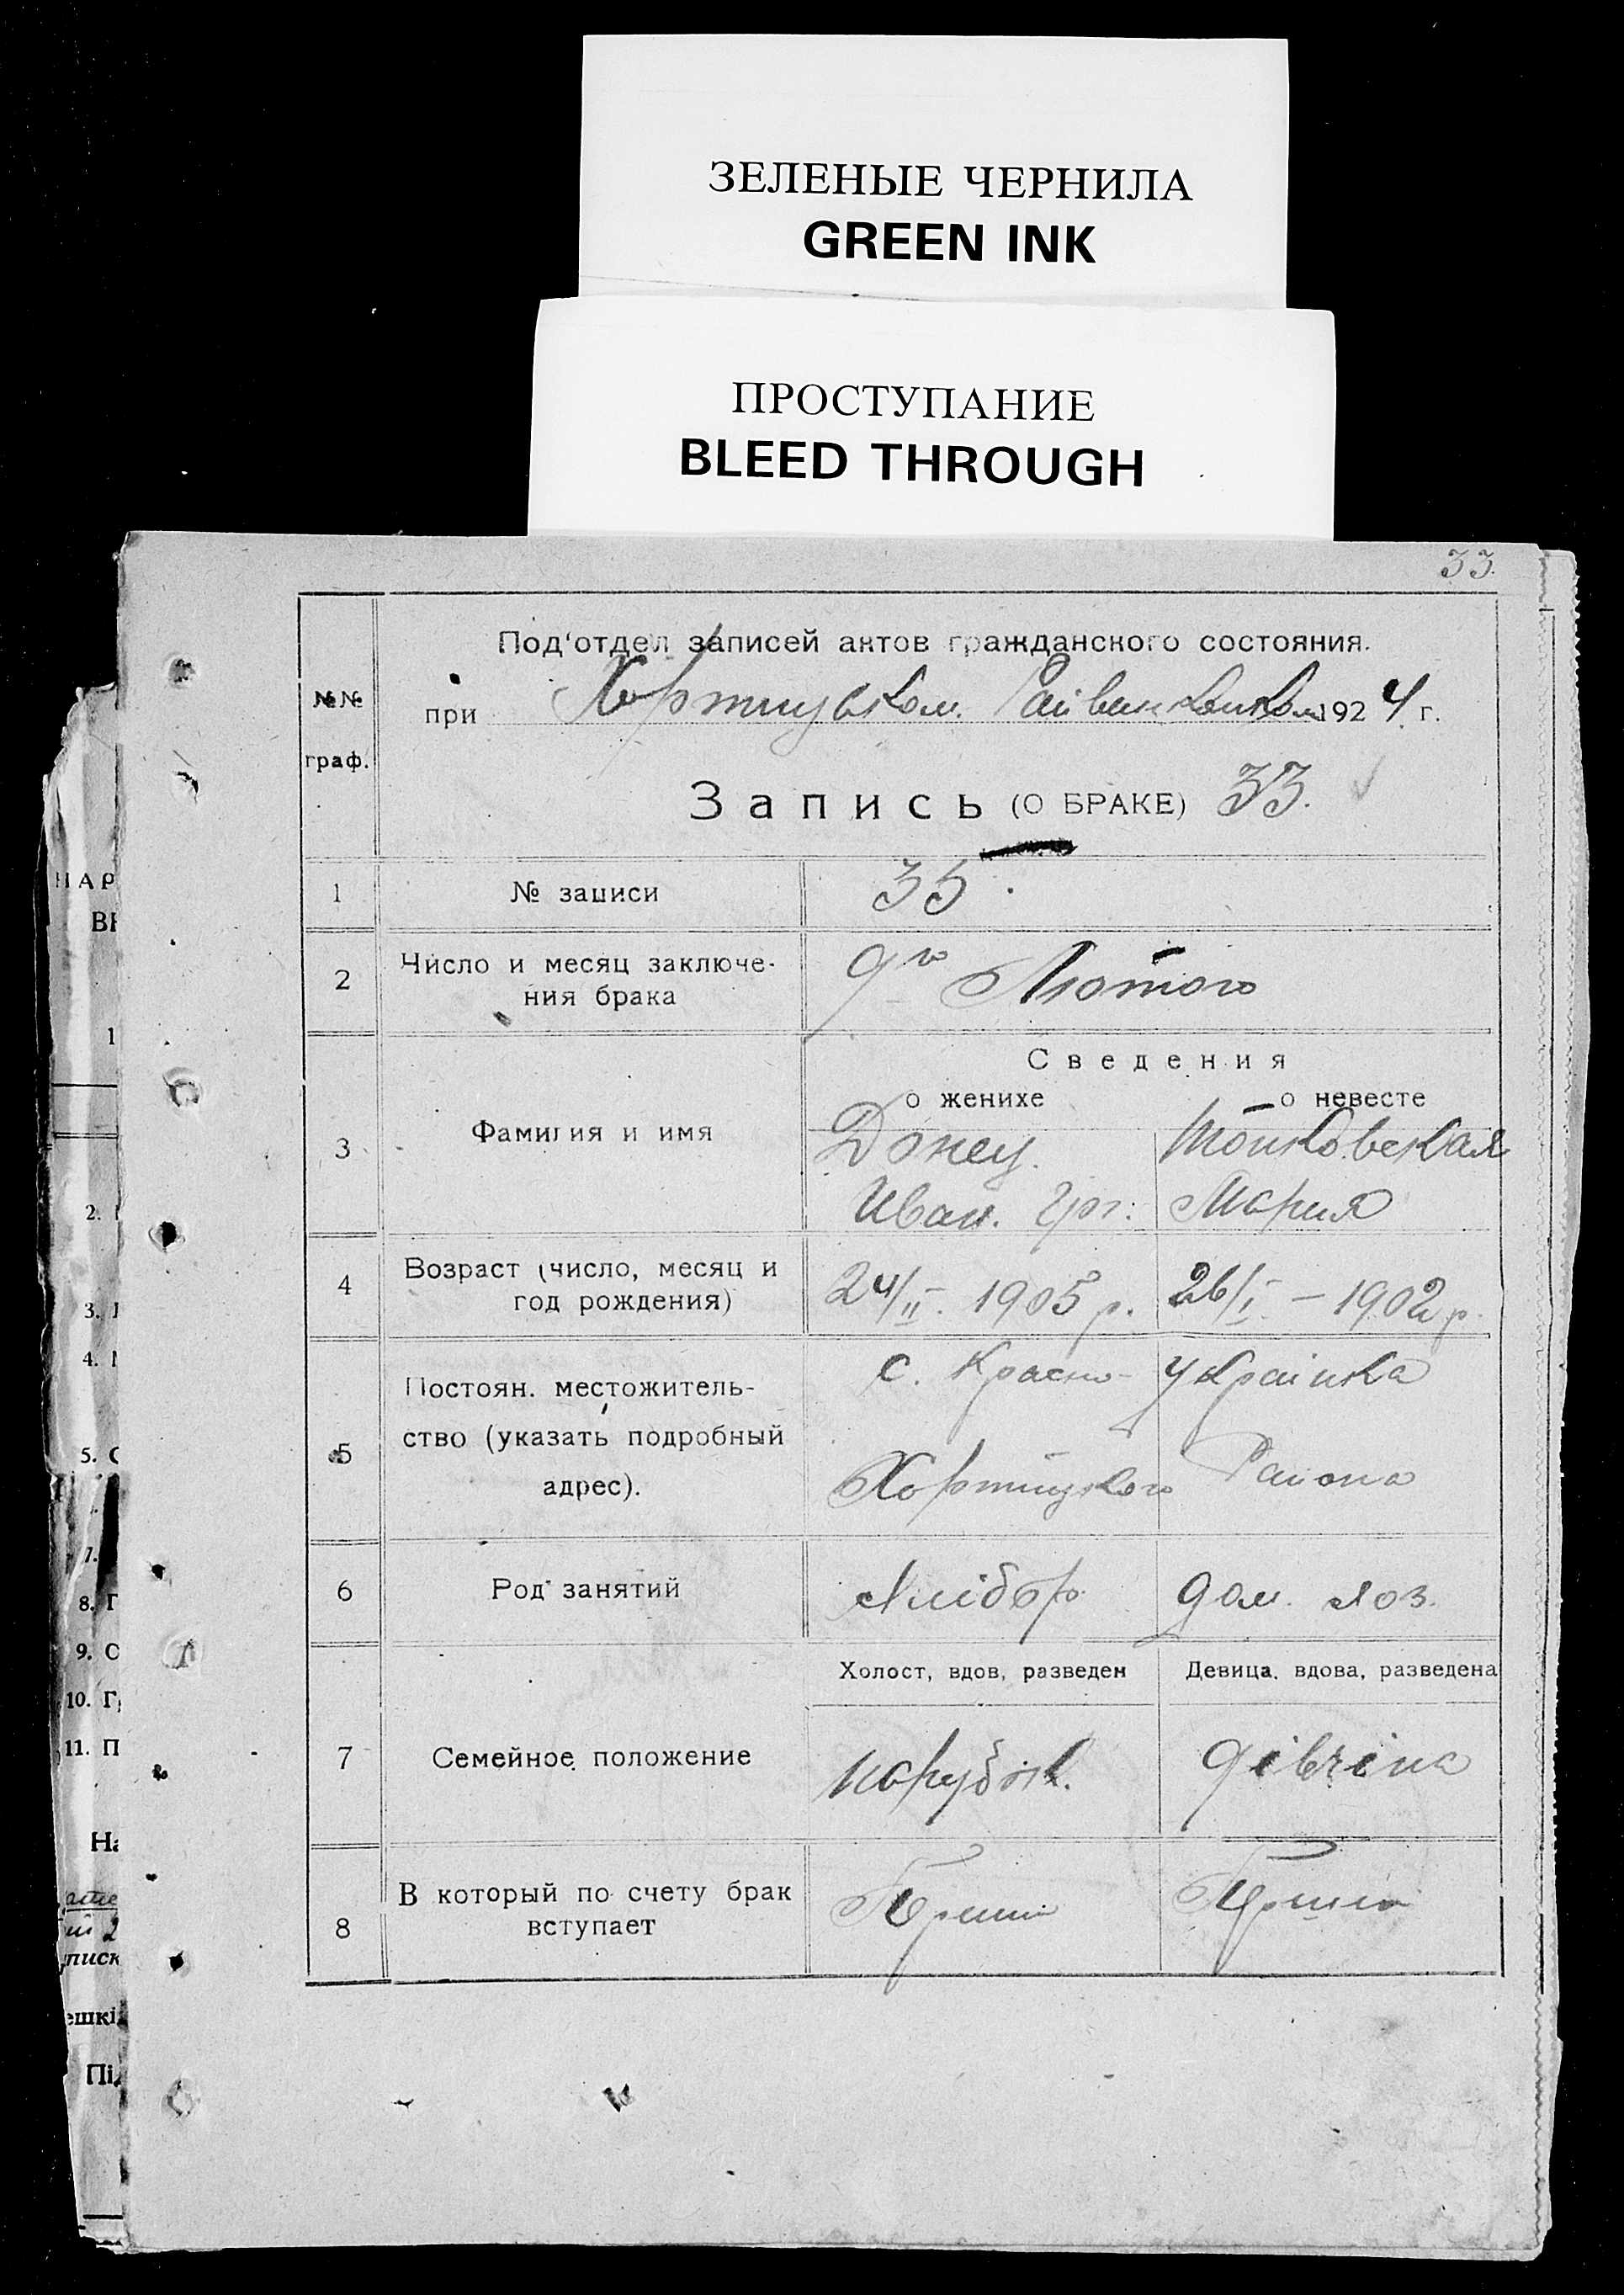 ЗЕЛЕНЫЕ ЧЕРНИЛА
GREEN INK
ПРОСТУПАНИЕ
BLEED THROUGH
33.
Под'отдел записей актов гражданского состояния.
№№ граф.
при Хортицьком 1924 г.
Запись (О БРАКЕ) 33.
1 № записи 35.
2 Число и месяц заключе-
ния брака
9го Лютого
Сведения
о женихе о невесте
3 Фамилия и имя
Донец
Иван. Гр. Мария
4 Возраст (число, месяц и
год рождения)
24/II. 1905 р. 26/I. – 1902 р.
5 Постоян. местожитель-
ство (указать подробный
адрес).
с. Красно- Українка
Хортицького Района
6 Род занятий
Хлібор. дом. хоз.
Холост, вдов, разведен Девица, вдова, разведена
7 Семейное положение
парубок. дівчина
8 В который по счету брак
вступает
НАР
ВІ
1
2.
3.
4.
5. С
7.
8. Г
9. С
10. Г
11. П
На
писк
ешкі
Під